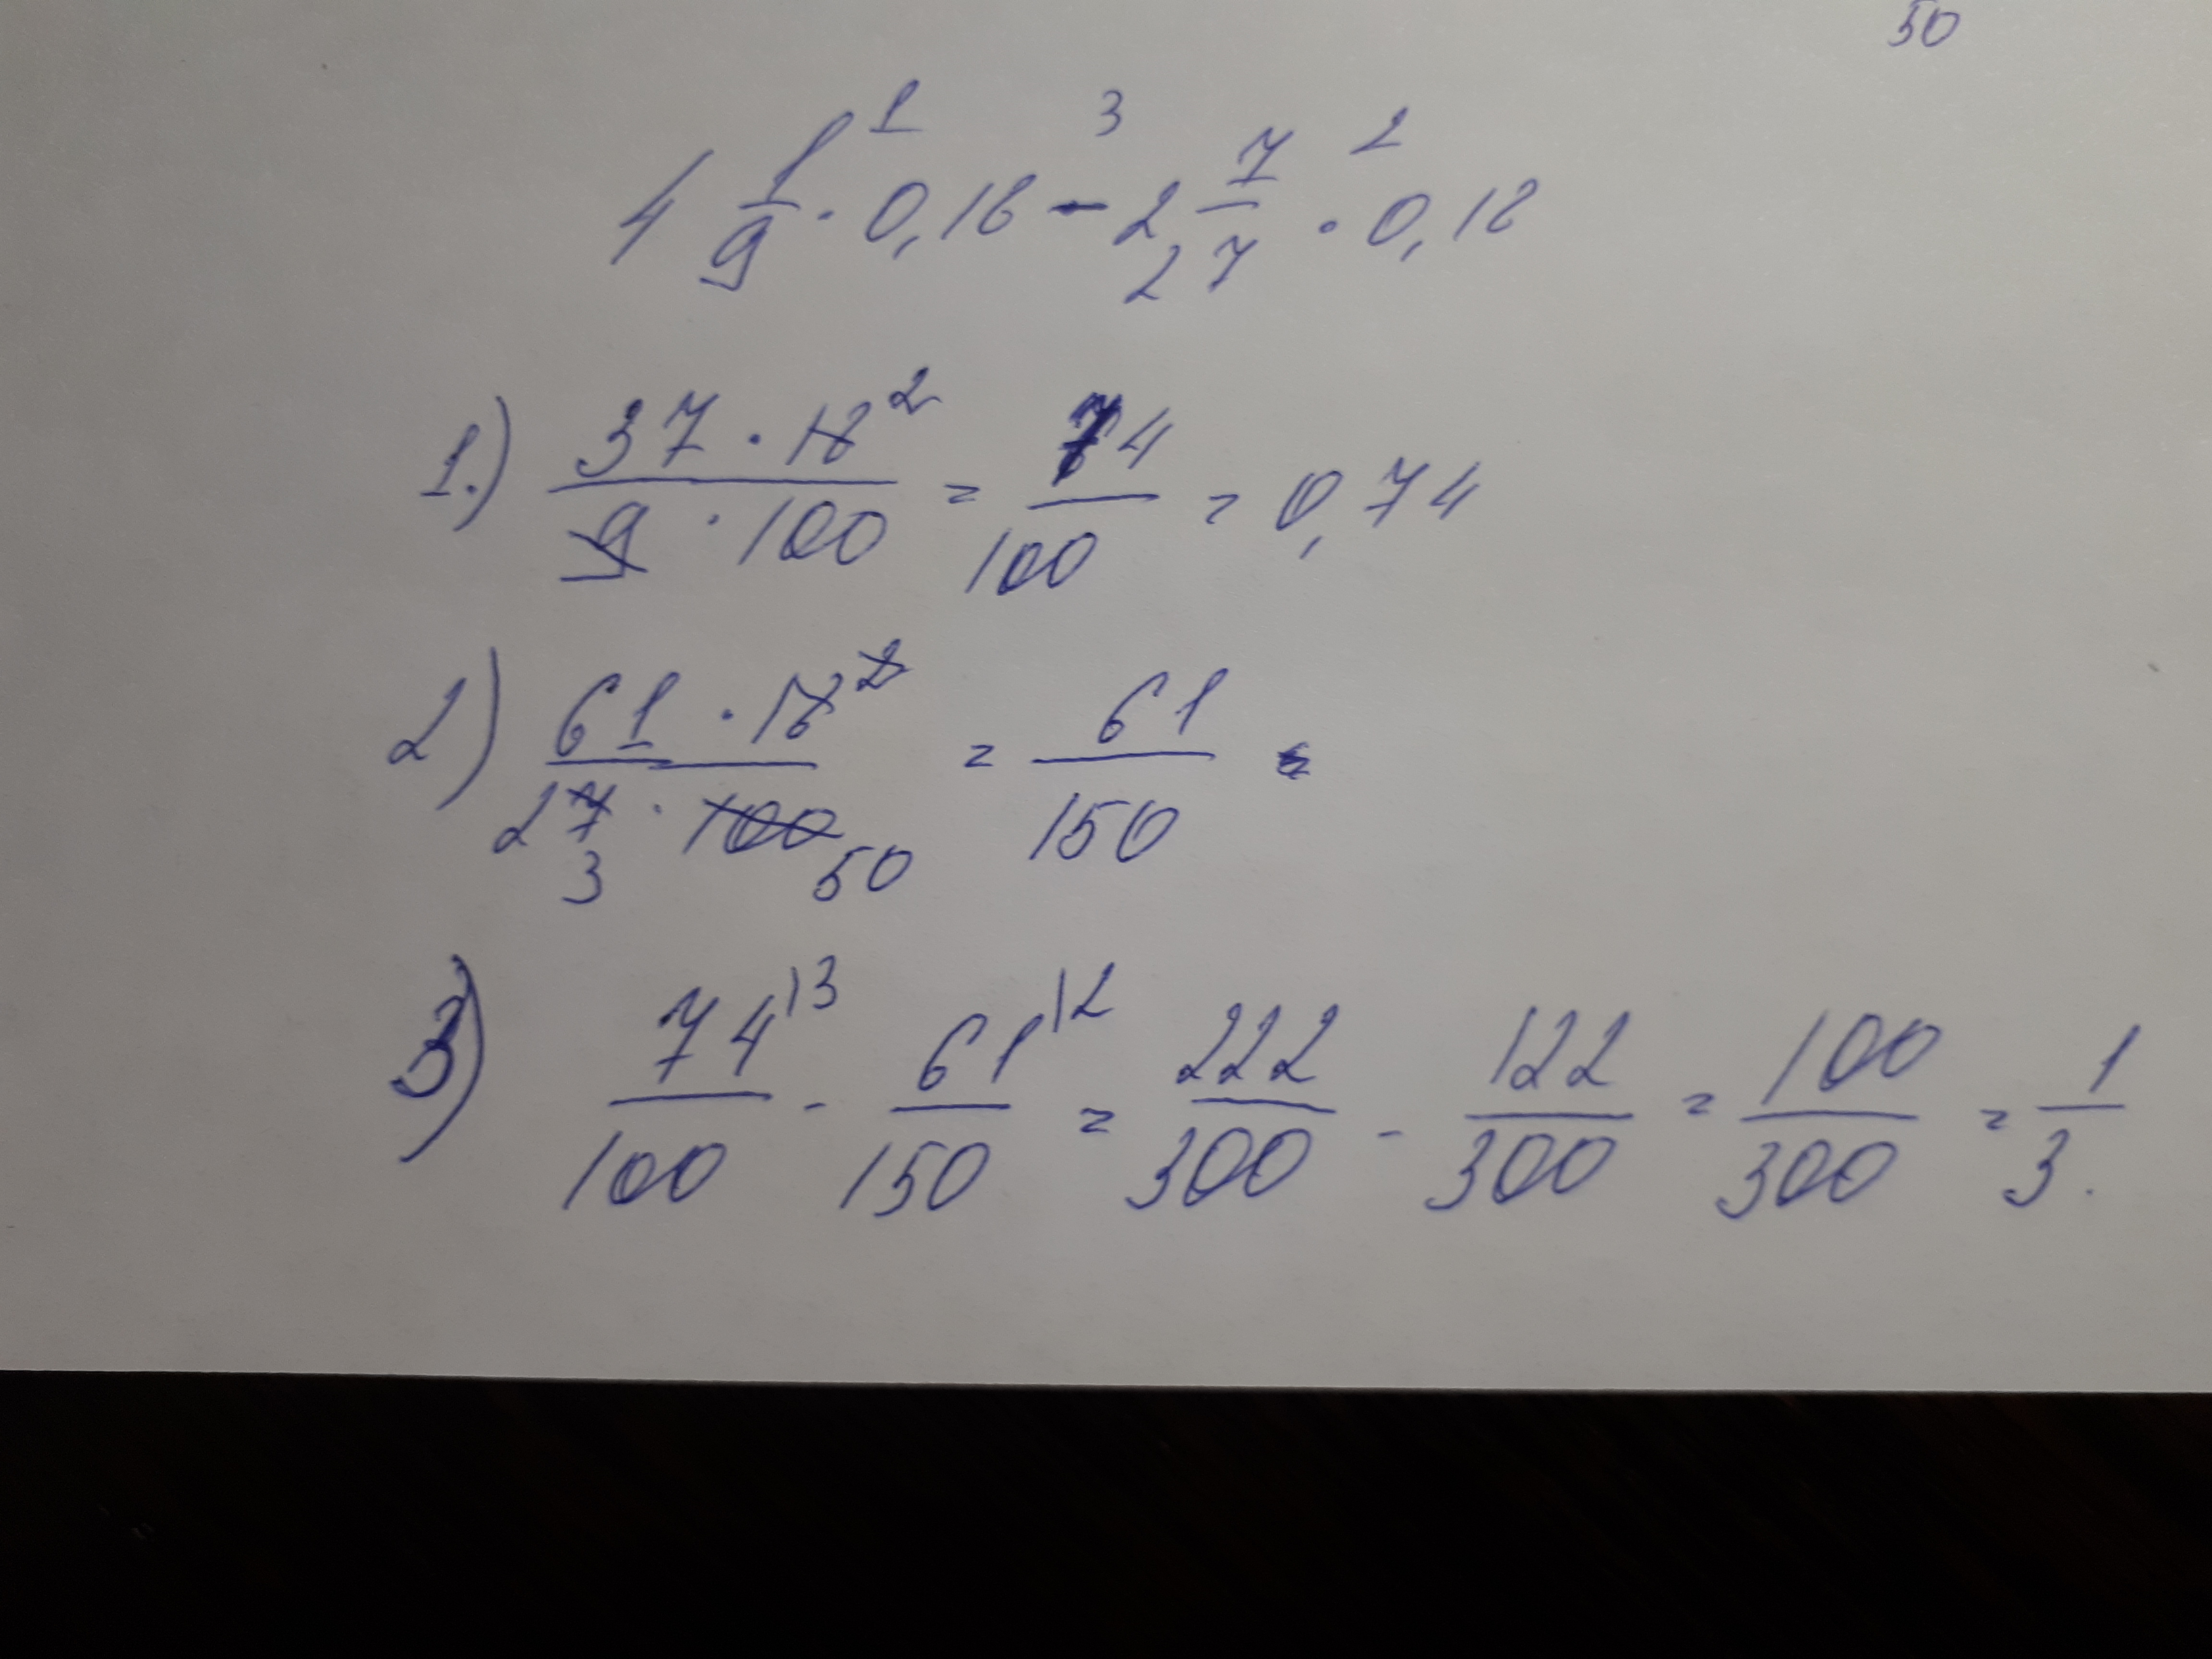 50
1 3 2
4 1/9 · 0,18 - 2 7/27 · 0,18
1.) 37 · 18² / 9 · 100 = 74/100 = 0,74
2) 61 · 18² / 27 · 100 = 61/150
3 50
3) 74\3/100 - 61\2/150 = 222/300 - 122/300 = 100/300 = 1/3.